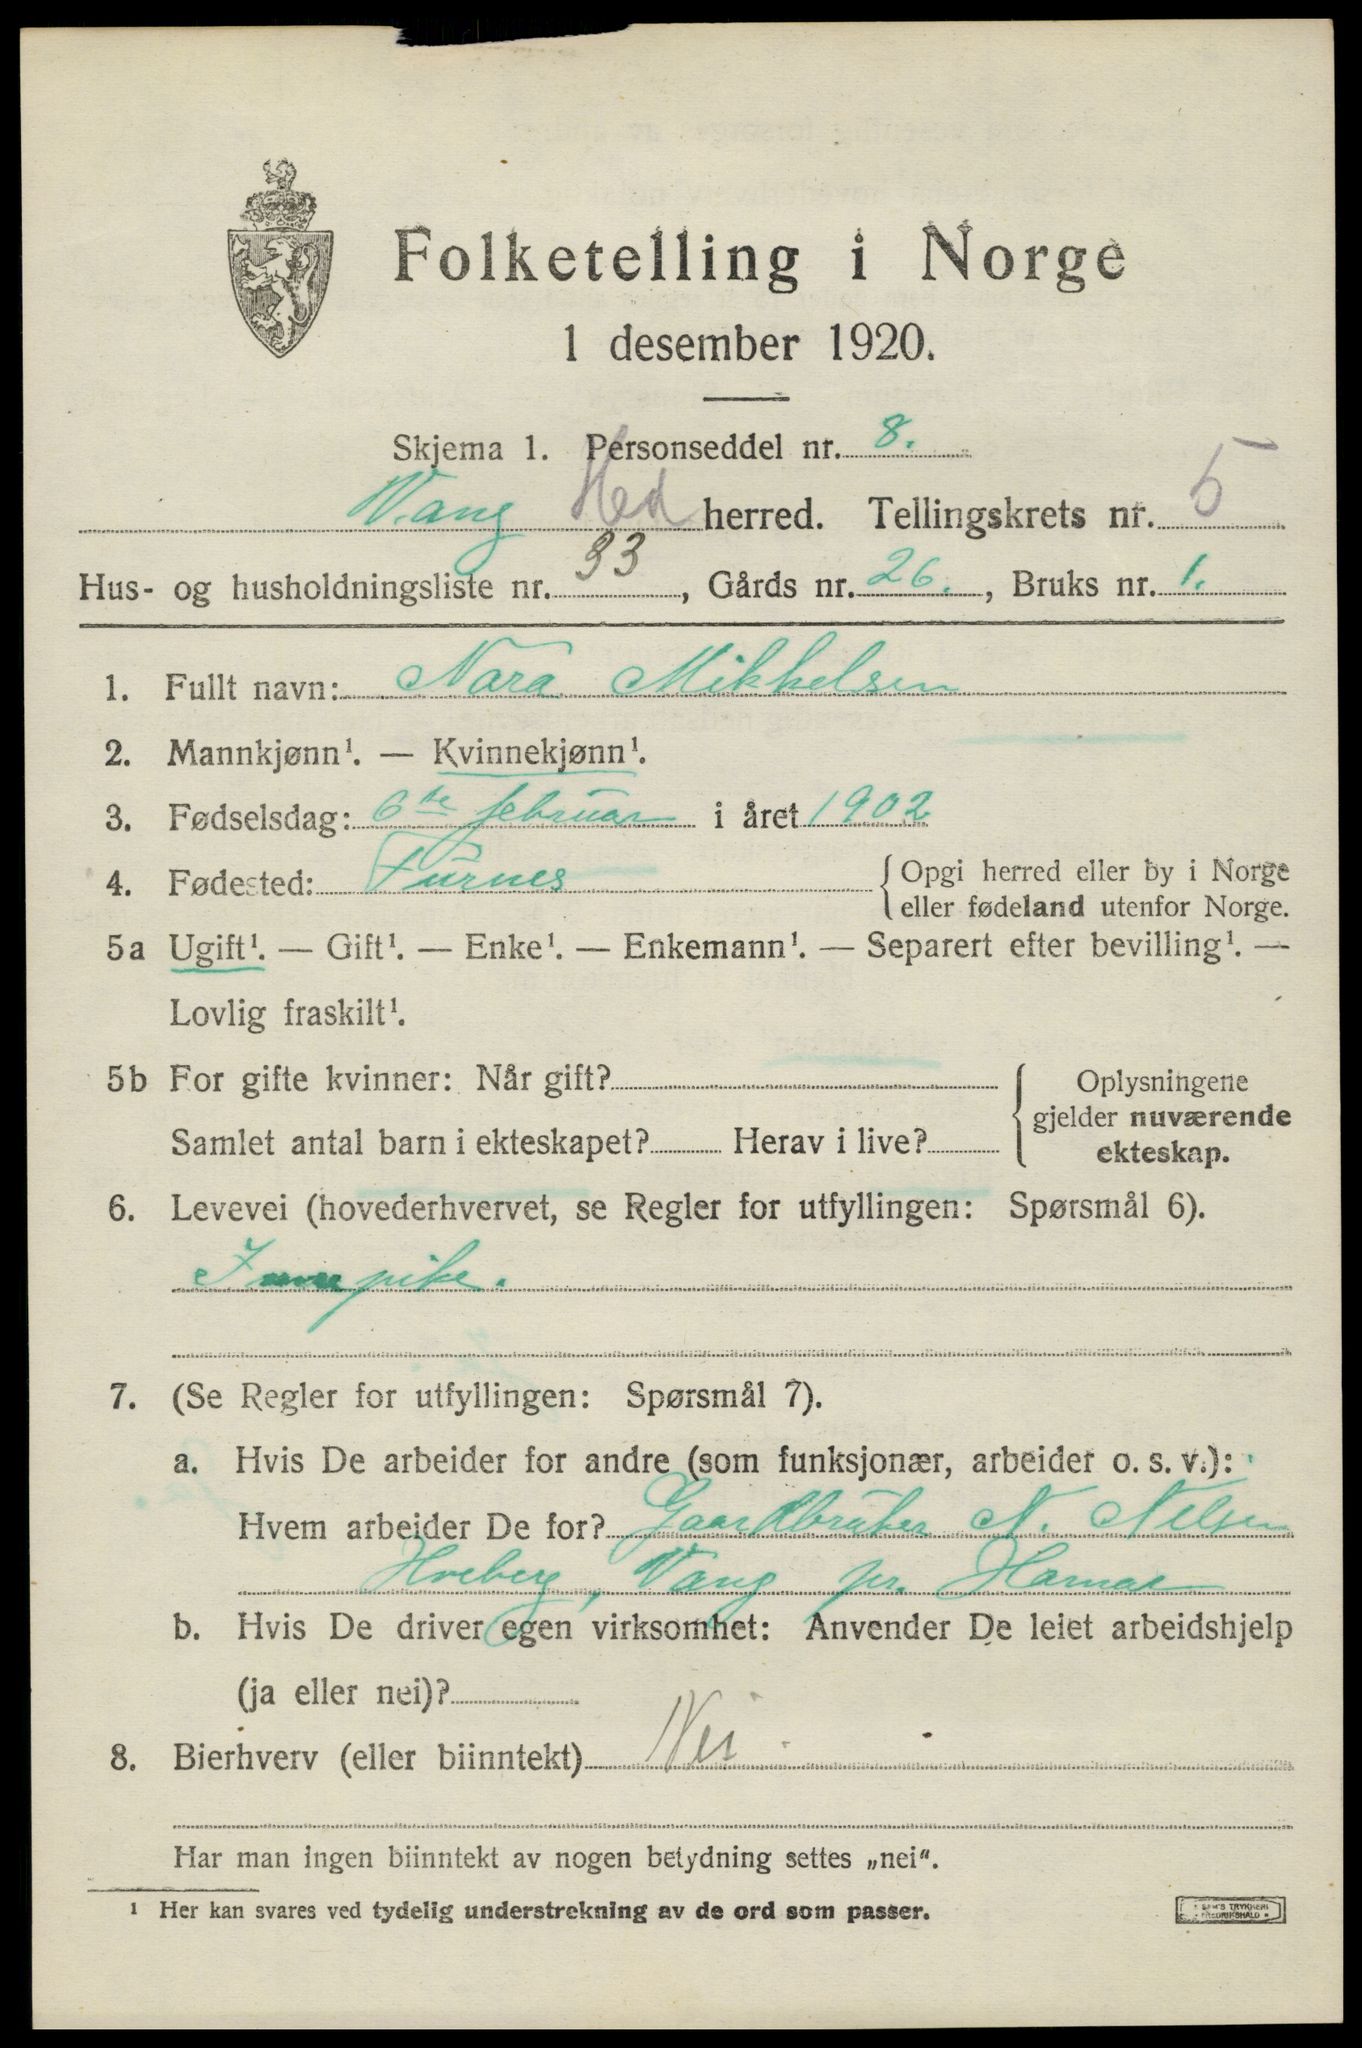 Folketelling i Norge
1 desember 1920.
Skjema 1. Personseddel nr. 8.
Vang Hed herred. Tellingskrets nr. 5
Hus- og husholdningsliste nr. 33, Gårds nr. 26., Bruks nr. 1.
1. Fullt navn: Nora Mikkelsen
2. Mannkjønn¹. — Kvinnekjønn¹.
3. Fødselsdag: 6te februar i året 1902
4. Fødested: Furnes {Opgi herred eller by i Norge
eller fødeland utenfor Norge.
5a Ugift¹. — Gift¹. — Enke¹. — Enkemann¹. — Separert efter bevilling¹. —
Lovlig fraskilt¹.
5b For gifte kvinner: Når gift?
Samlet antal barn i ekteskapet? Herav i live?
{Oplysningene
gjelder nuværende
ekteskap.
6. Levevei (hovederhvervet, se Regler for utfyllingen: Spørsmål 6).
pike.
7. (Se Regler for utfyllingen: Spørsmål 7).
a. Hvis De arbeider for andre (som funksjonær, arbeider o. s. v.):
Hvem arbeider De for? Gaardbruker N. Nilsen
Hveberg, Vang pr. Hamar
b. Hvis De driver egen virksomhet: Anvender De leiet arbeidshjelp
(ja eller nei)?
8. Bierhverv (eller biinntekt) Nei
Har man ingen biinntekt av nogen betydning settes „nei“.
¹ Her kan svares ved tydelig understrekning av de ord som passer.
TRYKKERI
FREDRIKSHALD